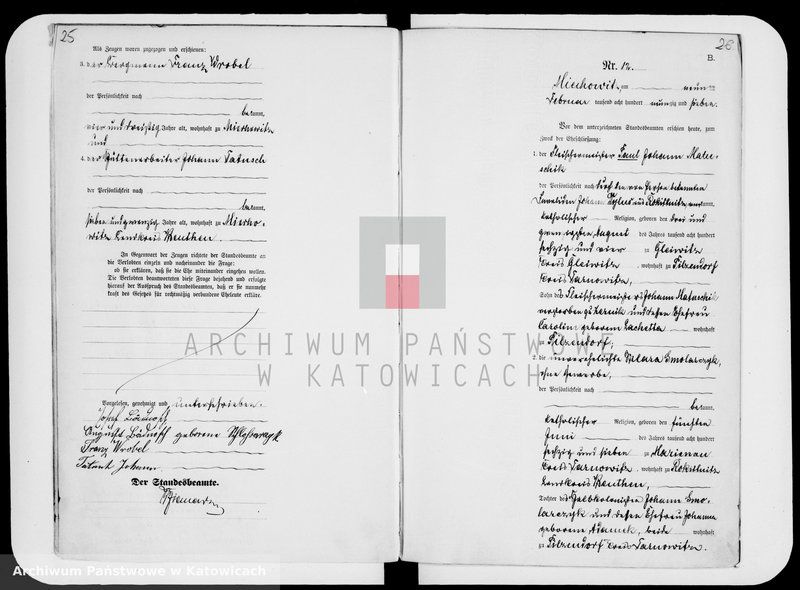 25
Als Zeugen waren zugezogen und erschienen:
3. der Bergmann Franz Wrobel
der Persönlichkeit nach
bekannt,
vier und dreißig Jahre alt, wohnhaft zu Miechowitz
und
4. der Hüttenarbeiter Johann
der Persönlichkeit nach
bekannt,
sieben und zwanzig Jahre alt, wohnhaft zu Miecho-
witz Landkreis Beuthen.
In Gegenwart der Zeugen richtete der Standesbeamte an
die Verlobten einzeln und nacheinander die Frage:
ob sie erklären, daß sie die Ehe miteinander eingehen wollen.
Die Verlobten beantworteten diese Frage bejahend und erfolgte
hierauf der Ausspruch des Standesbeamten, daß er sie nunmehr
kraft des Gesetzes für rechtmäßig verbundene Eheleute erkläre.
Vorgelesen, genehmigt und unterschrieben.
Josef
August geborene
Franz Wrobel
Johann
Der Standesbeamte.
26
B.
Nr. 12.
Miechowitz, am neun ten
Februar tausend acht hundert neunzig und sieben.
Vor dem unterzeichneten Standesbeamten erschien heute, zum
Zweck der Eheschließung:
1. der Fleischermeister Paul Johann
der Persönlichkeit nach durch den von Person bekannten
Invaliden Johann aus Rokittnitz anerkannt,
katholischer Religion, geboren den drei und
zwanzigsten August des Jahres tausend acht hundert
sechzig und vier zu Gleiwitz
Kreis Gleiwitz, wohnhaft zu Ptakowitz
Kreis Tarnowitz,
Sohn des Fleischermeisters Johann
verstorben zu und dessen Ehefrau
Carolin geborenen wohnhaft
zu
2. die unverehelichte Klara Smolarczyk,
ohne Gewerbe,
der Persönlichkeit nach
bekannt,
katholischer Religion, geboren den fünften
Juni des Jahres tausend acht hundert
sechzig und sieben zu Marienau
Kreis Tarnowitz, wohnhaft zu Rokittnitz
Landkreis Beuthen,
Tochter des Johann Smo-
larczyk und dessen Ehefrau Johanna
geborene Adamek, beide wohnhaft
zu Kreis Tarnowitz.
ARCHIWUM PAŃSTWOWE
W KATOWICACH
Archiwum Państwowe w Katowicach